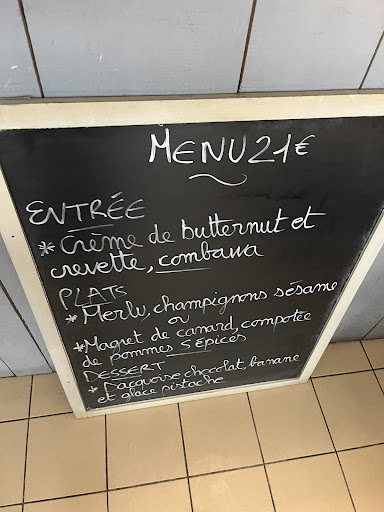 MENU 21€
ENTRÉE
* Crème de butternut et
crevette, combawa
PLATS
* Merlu, champignons sésame
ou
* Magret de canard, compotée
de pommes 5 épices
DESSERT
* Dacquoise chocolat banane
et glace pistache